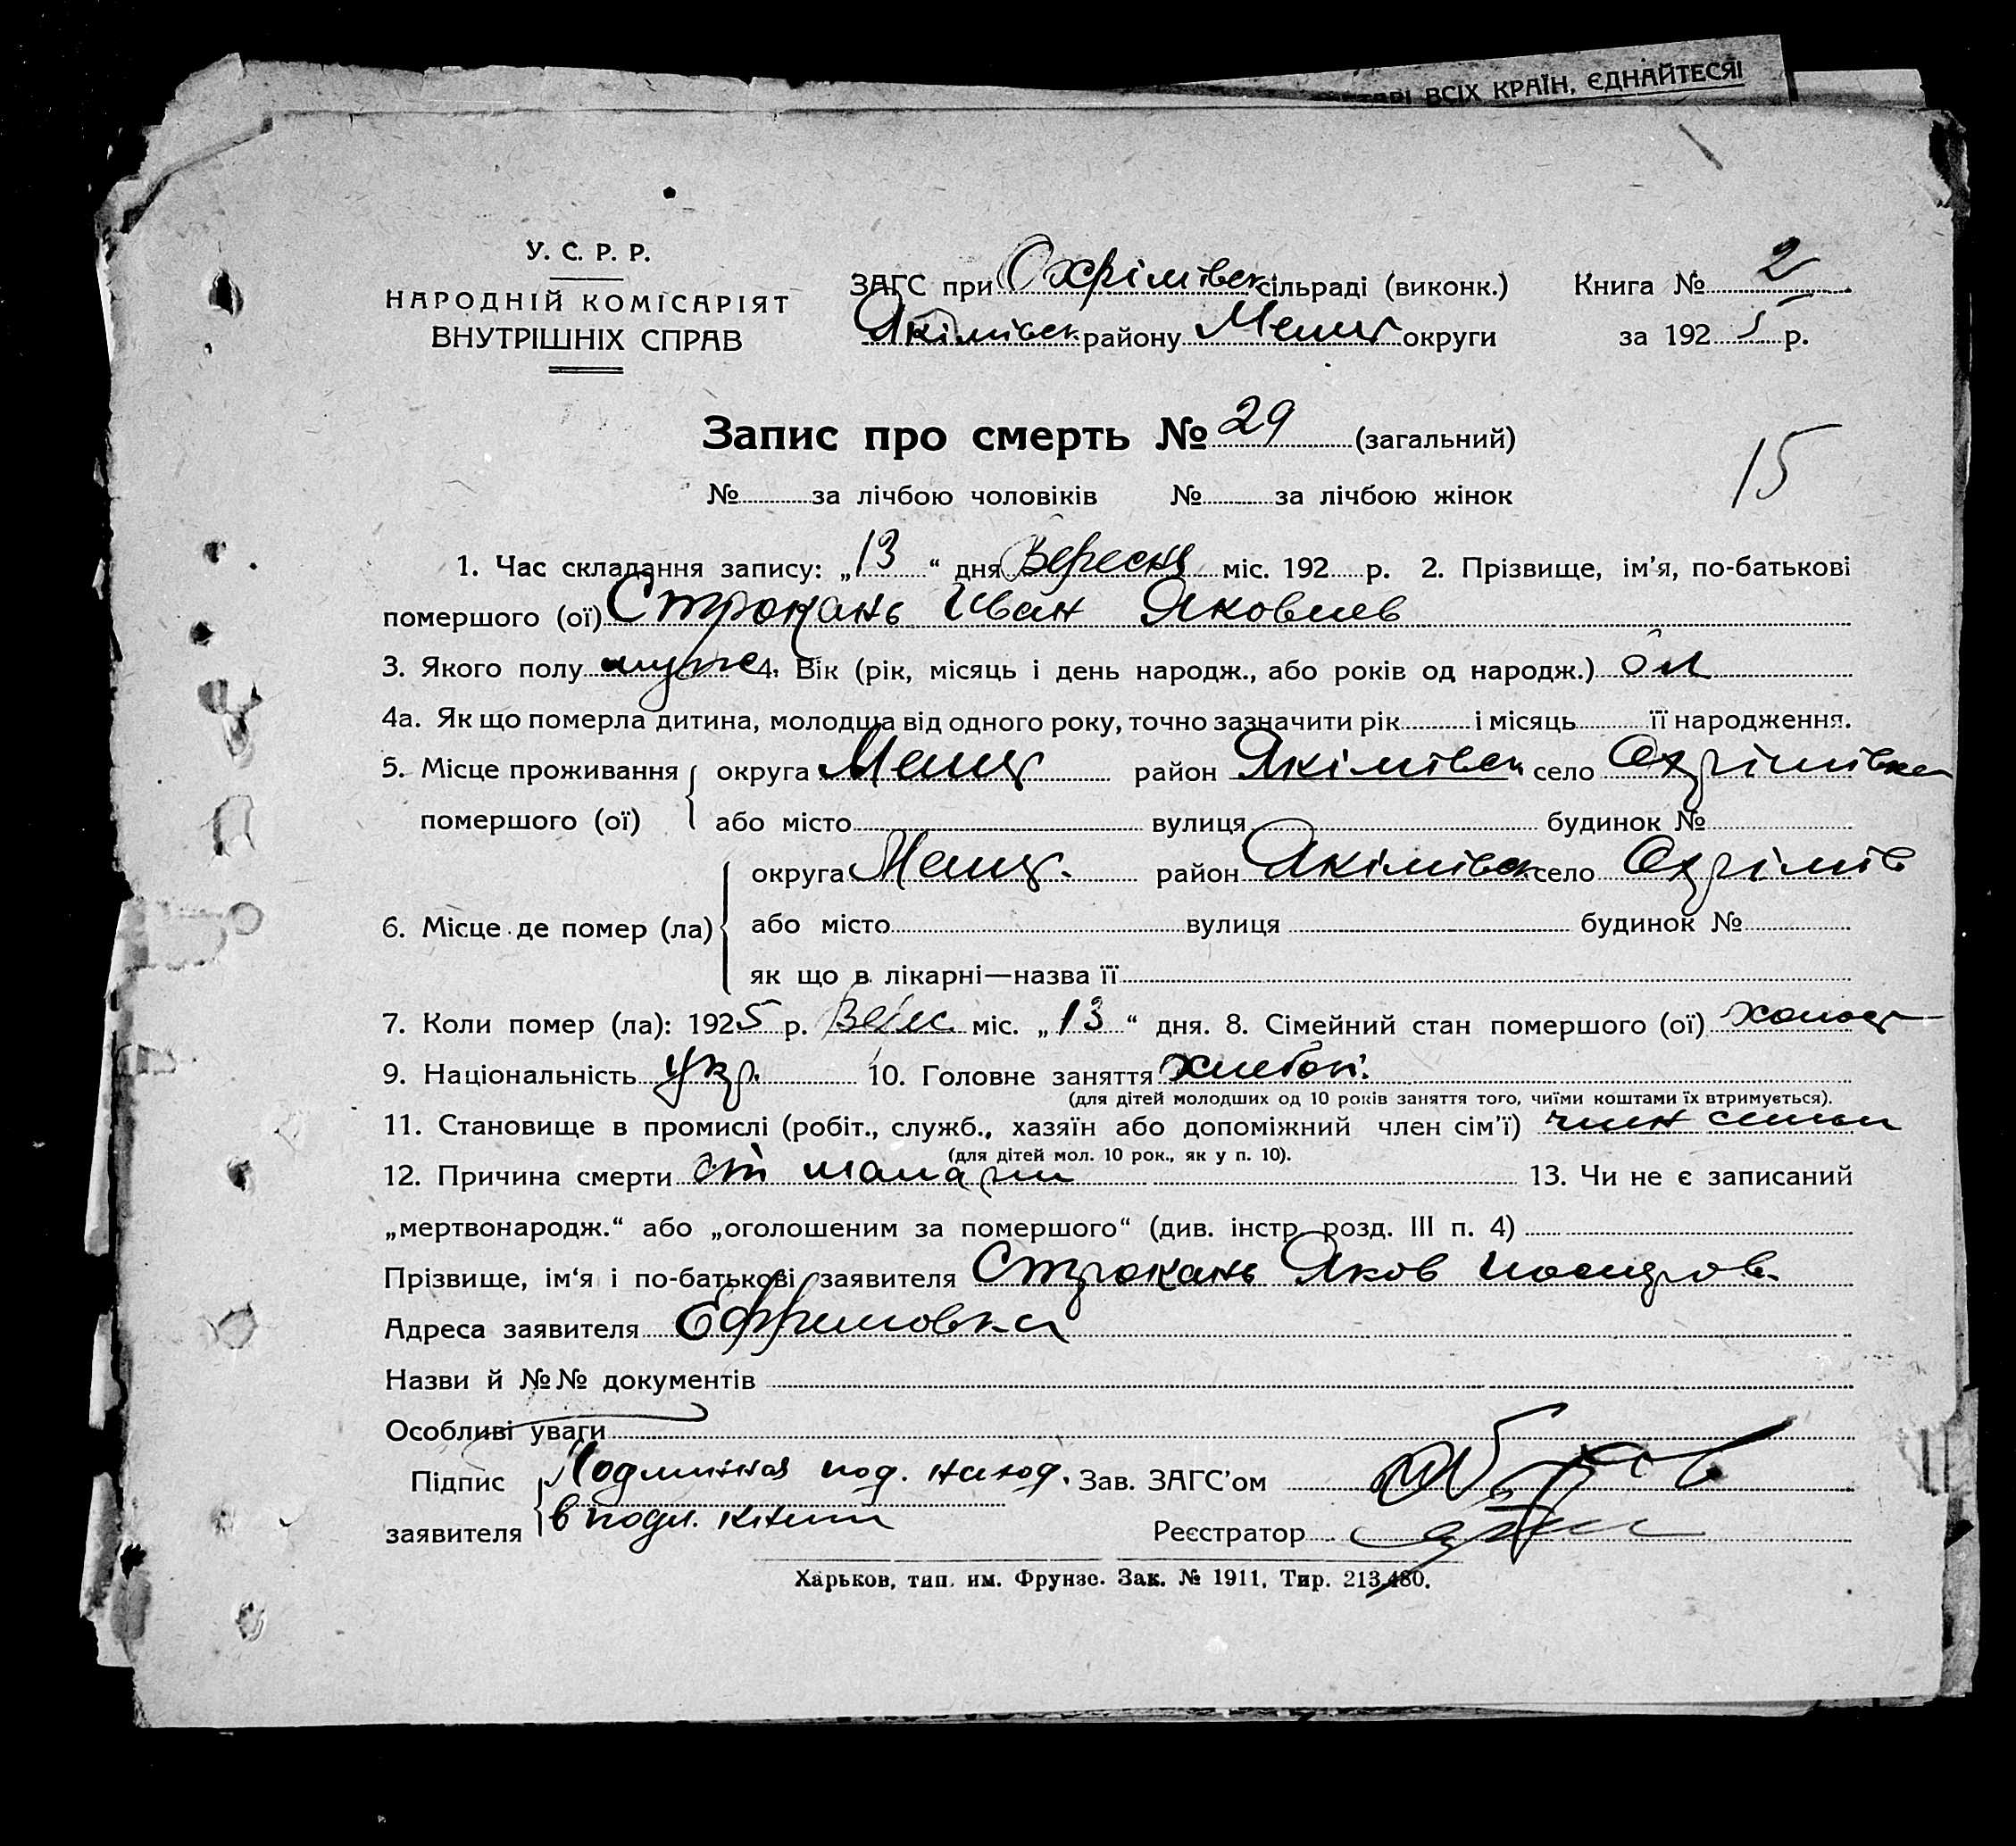 ВСІХ КРАЇН, ЄДНАЙТЕСЯ!
У. С. Р. Р.
НАРОДНІЙ КОМІСАРІЯТ
ВНУТРІШНІХ СПРАВ
ЗАГС при Охрімівск сільраді (виконк.) Книга № 2
Якімівск району Меліт округи за 1925 р.
Запис про смерть № 29 (загальний)
15
№ за лічбою чоловіків № за лічбою жінок
1. Час складання запису: „13“ дня Вересня міс. 192 р. 2. Прізвище, ім'я, по-батькові
помершого (ої) Строкань Иван Яковлев
3. Якого полу муже 4. Вік (рік, місяць і день народж., або років од народж.)
4а. Як що померла дитина, молодша від одного року, точно зазначити рік і місяць її народження.
5. Місце проживання округа Меліт район Якімівск село Охрімівка
помершого (ої) або місто вулиця будинок №
округа Меліт. район Якімівск село Охрімів
6. Місце де помер (ла) або місто вулиця будинок №
як що в лікарні—назва її
7. Коли помер (ла): 1925 р. Верес міс. „13“ дня. 8. Сімейний стан помершого (ої) холост
9. Національність Укр. 10. Головне заняття хлебоп.
(для дітей молодших од 10 років заняття того, чиїми коштами їх втримується).
11. Становище в промислі (робіт., служб., хазяїн або допоміжний член сім'ї) член семьи
(для дітей мол. 10 рок., як у п. 10).
12. Причина смерти от малярии 13. Чи не є записаний
„мертвонародж.“ або „оголошеним за помершого“ (див. інстр. розд. III п. 4)
Прізвище, ім'я і по-батькові заявителя Строкань Яков
Адреса заявителя Ефремовка
Назви й №№ документів
Особливі уваги
Підпис Подлинная под. наход. Зав. ЗАГС'ом
заявителя в подл. книги Реєстратор
Харьков, тип. им. Фрунзе. Зак. № 1911, Тир. 213.480.